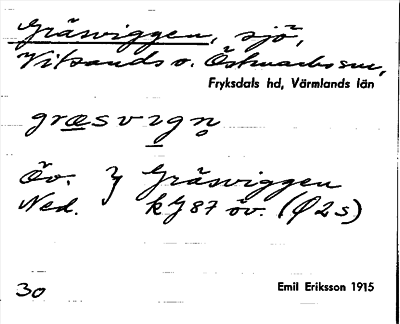 Gräsviggen, sjö,
Vitsands o. Östmarks snr,
Fryksdals hd, Värmlands län
græsvıgn̥
Öv. } Gräsviggen
Ned. kJ 87 öv. (Ø 2s)
30
Emil Eriksson 1915